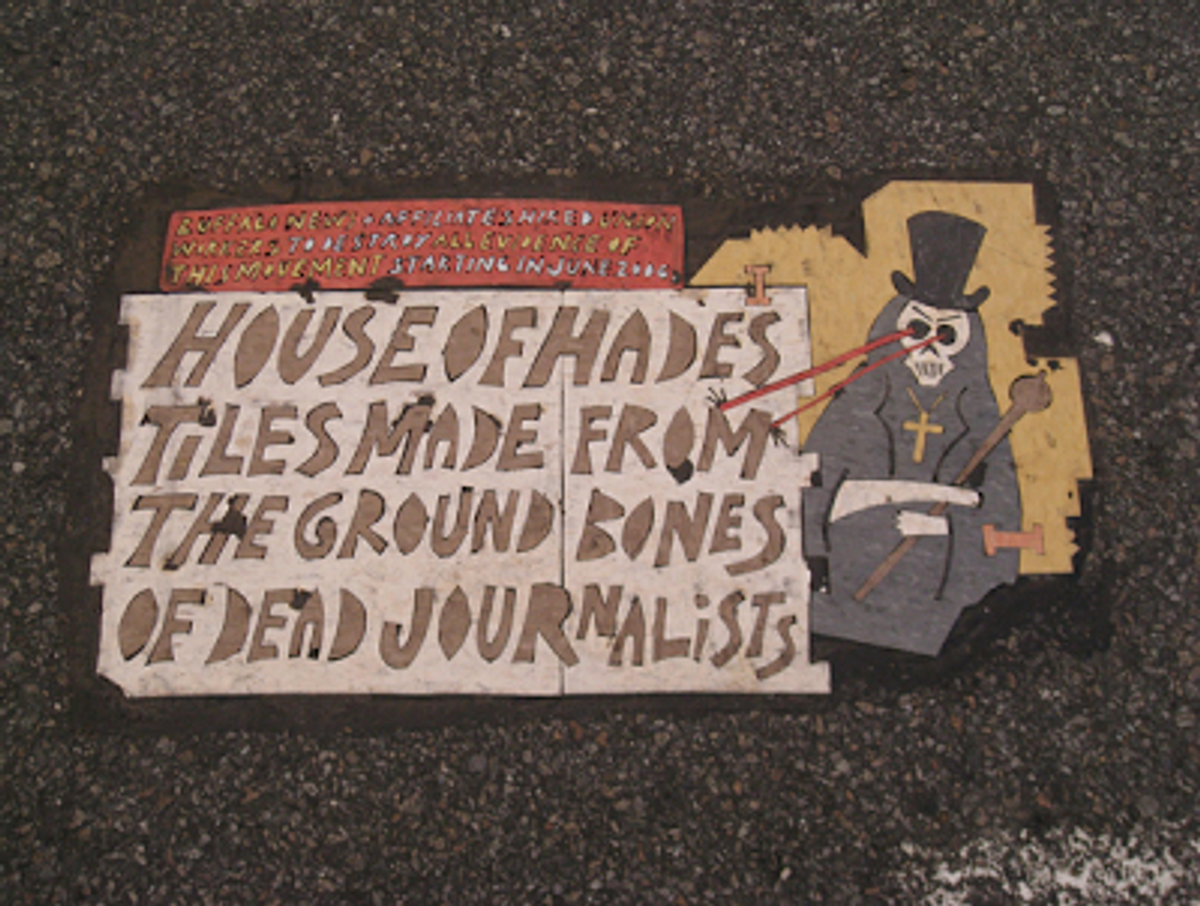 BUFFALO NEWS + AFFILIATES HIRED UNION
WORKERS TO DESTROY ALL EVIDENCE OF
THIS MOVEMENT STARTING IN JUNE 2006.
I
HOUSE OF HADES
TILES MADE FROM
THE GROUND BONES
OF DEAD JOURNALiSTS
I